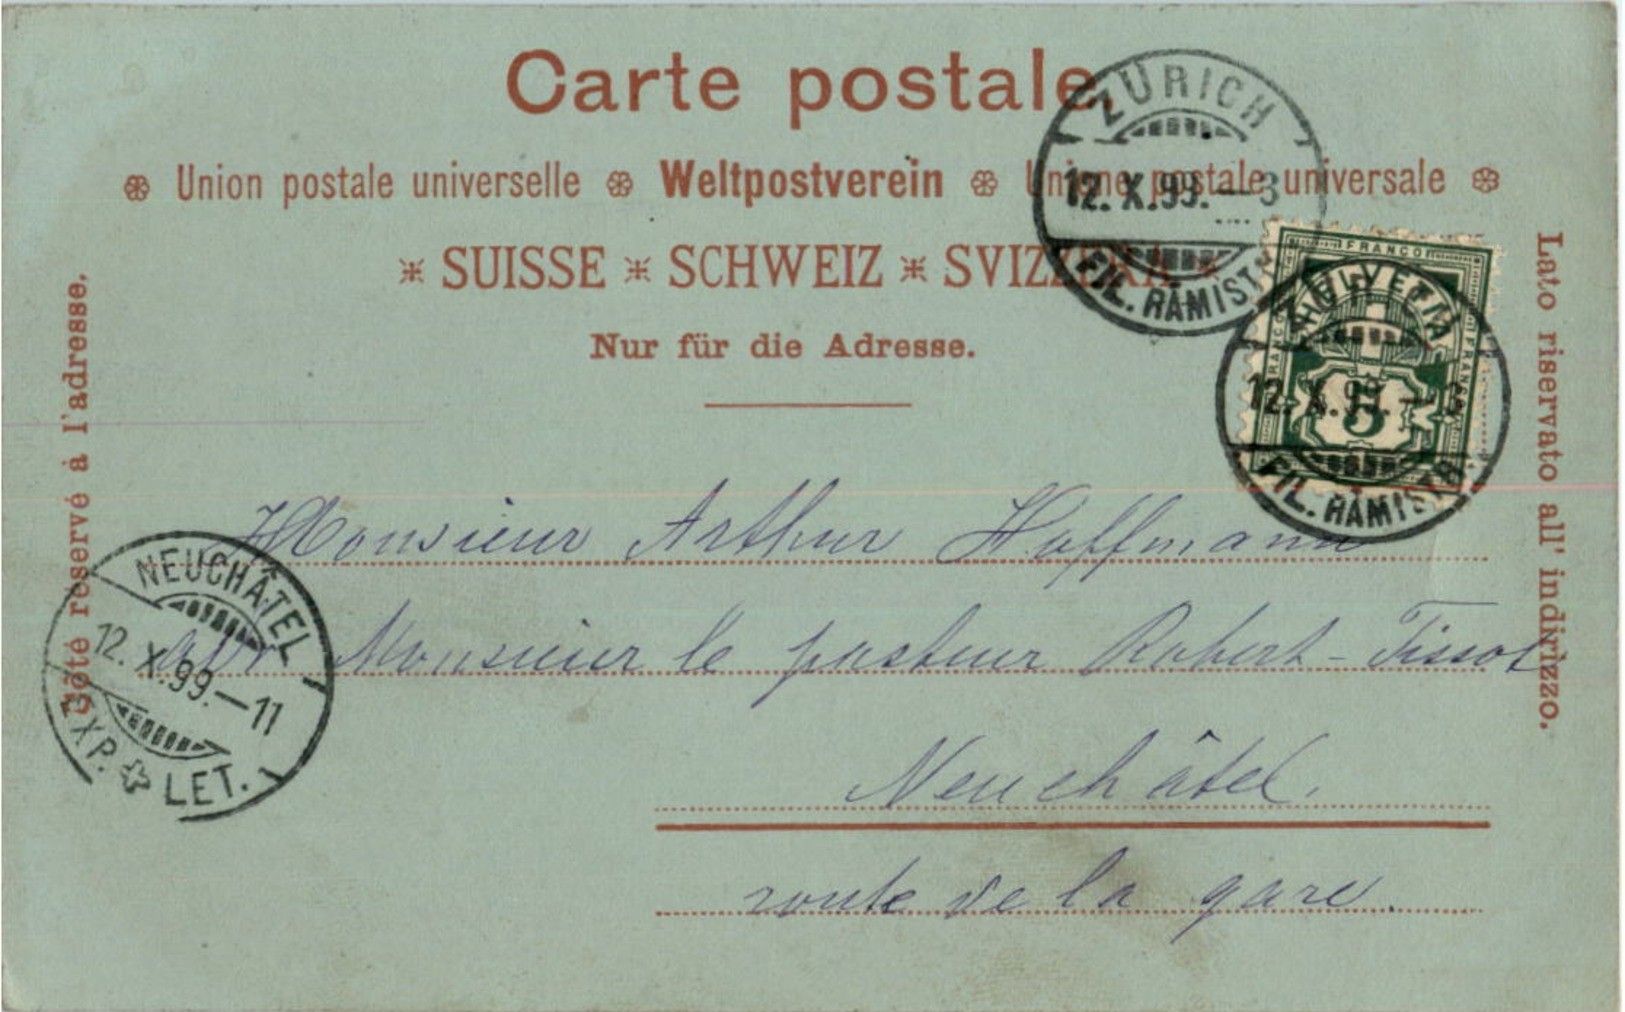 Carte postale.
Union postale universelle Weltpostverein Unione postale universale
SUISSE SCHWEIZ SVIZZERA
Nur für die Adresse.
Côté réservé à l'adresse.
Lato riservato all' indirizzo.
ZÜRICH
12. X.99.—3
FIL. RÄMISTR.
FRANCO
HELVETIA
FRANCO
FRANCO
5
12. X.99.—3
FIL. RÄMISTR.
NEUCHÂTEL
12. X.99.—11
EXP. LET.
Monsieur Arthur Hoffmann
Monsieur le pasteur Robert-Tissot
Neuchâtel.
route de la gare.